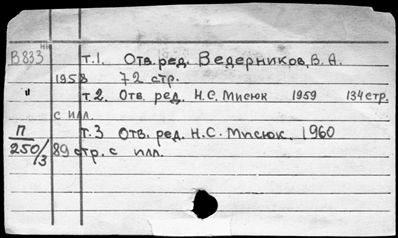 В833 нк т.1. Отв. ред. Ведерников, В. А.
1958 72 стр.
" т.2. Отв. ред. Н.С. Мисюк 1959 134 стр.
с илл.
П т.3 Отв. ред. Н.С. Мисюк. 1960
250/3 89 стр. с илл.